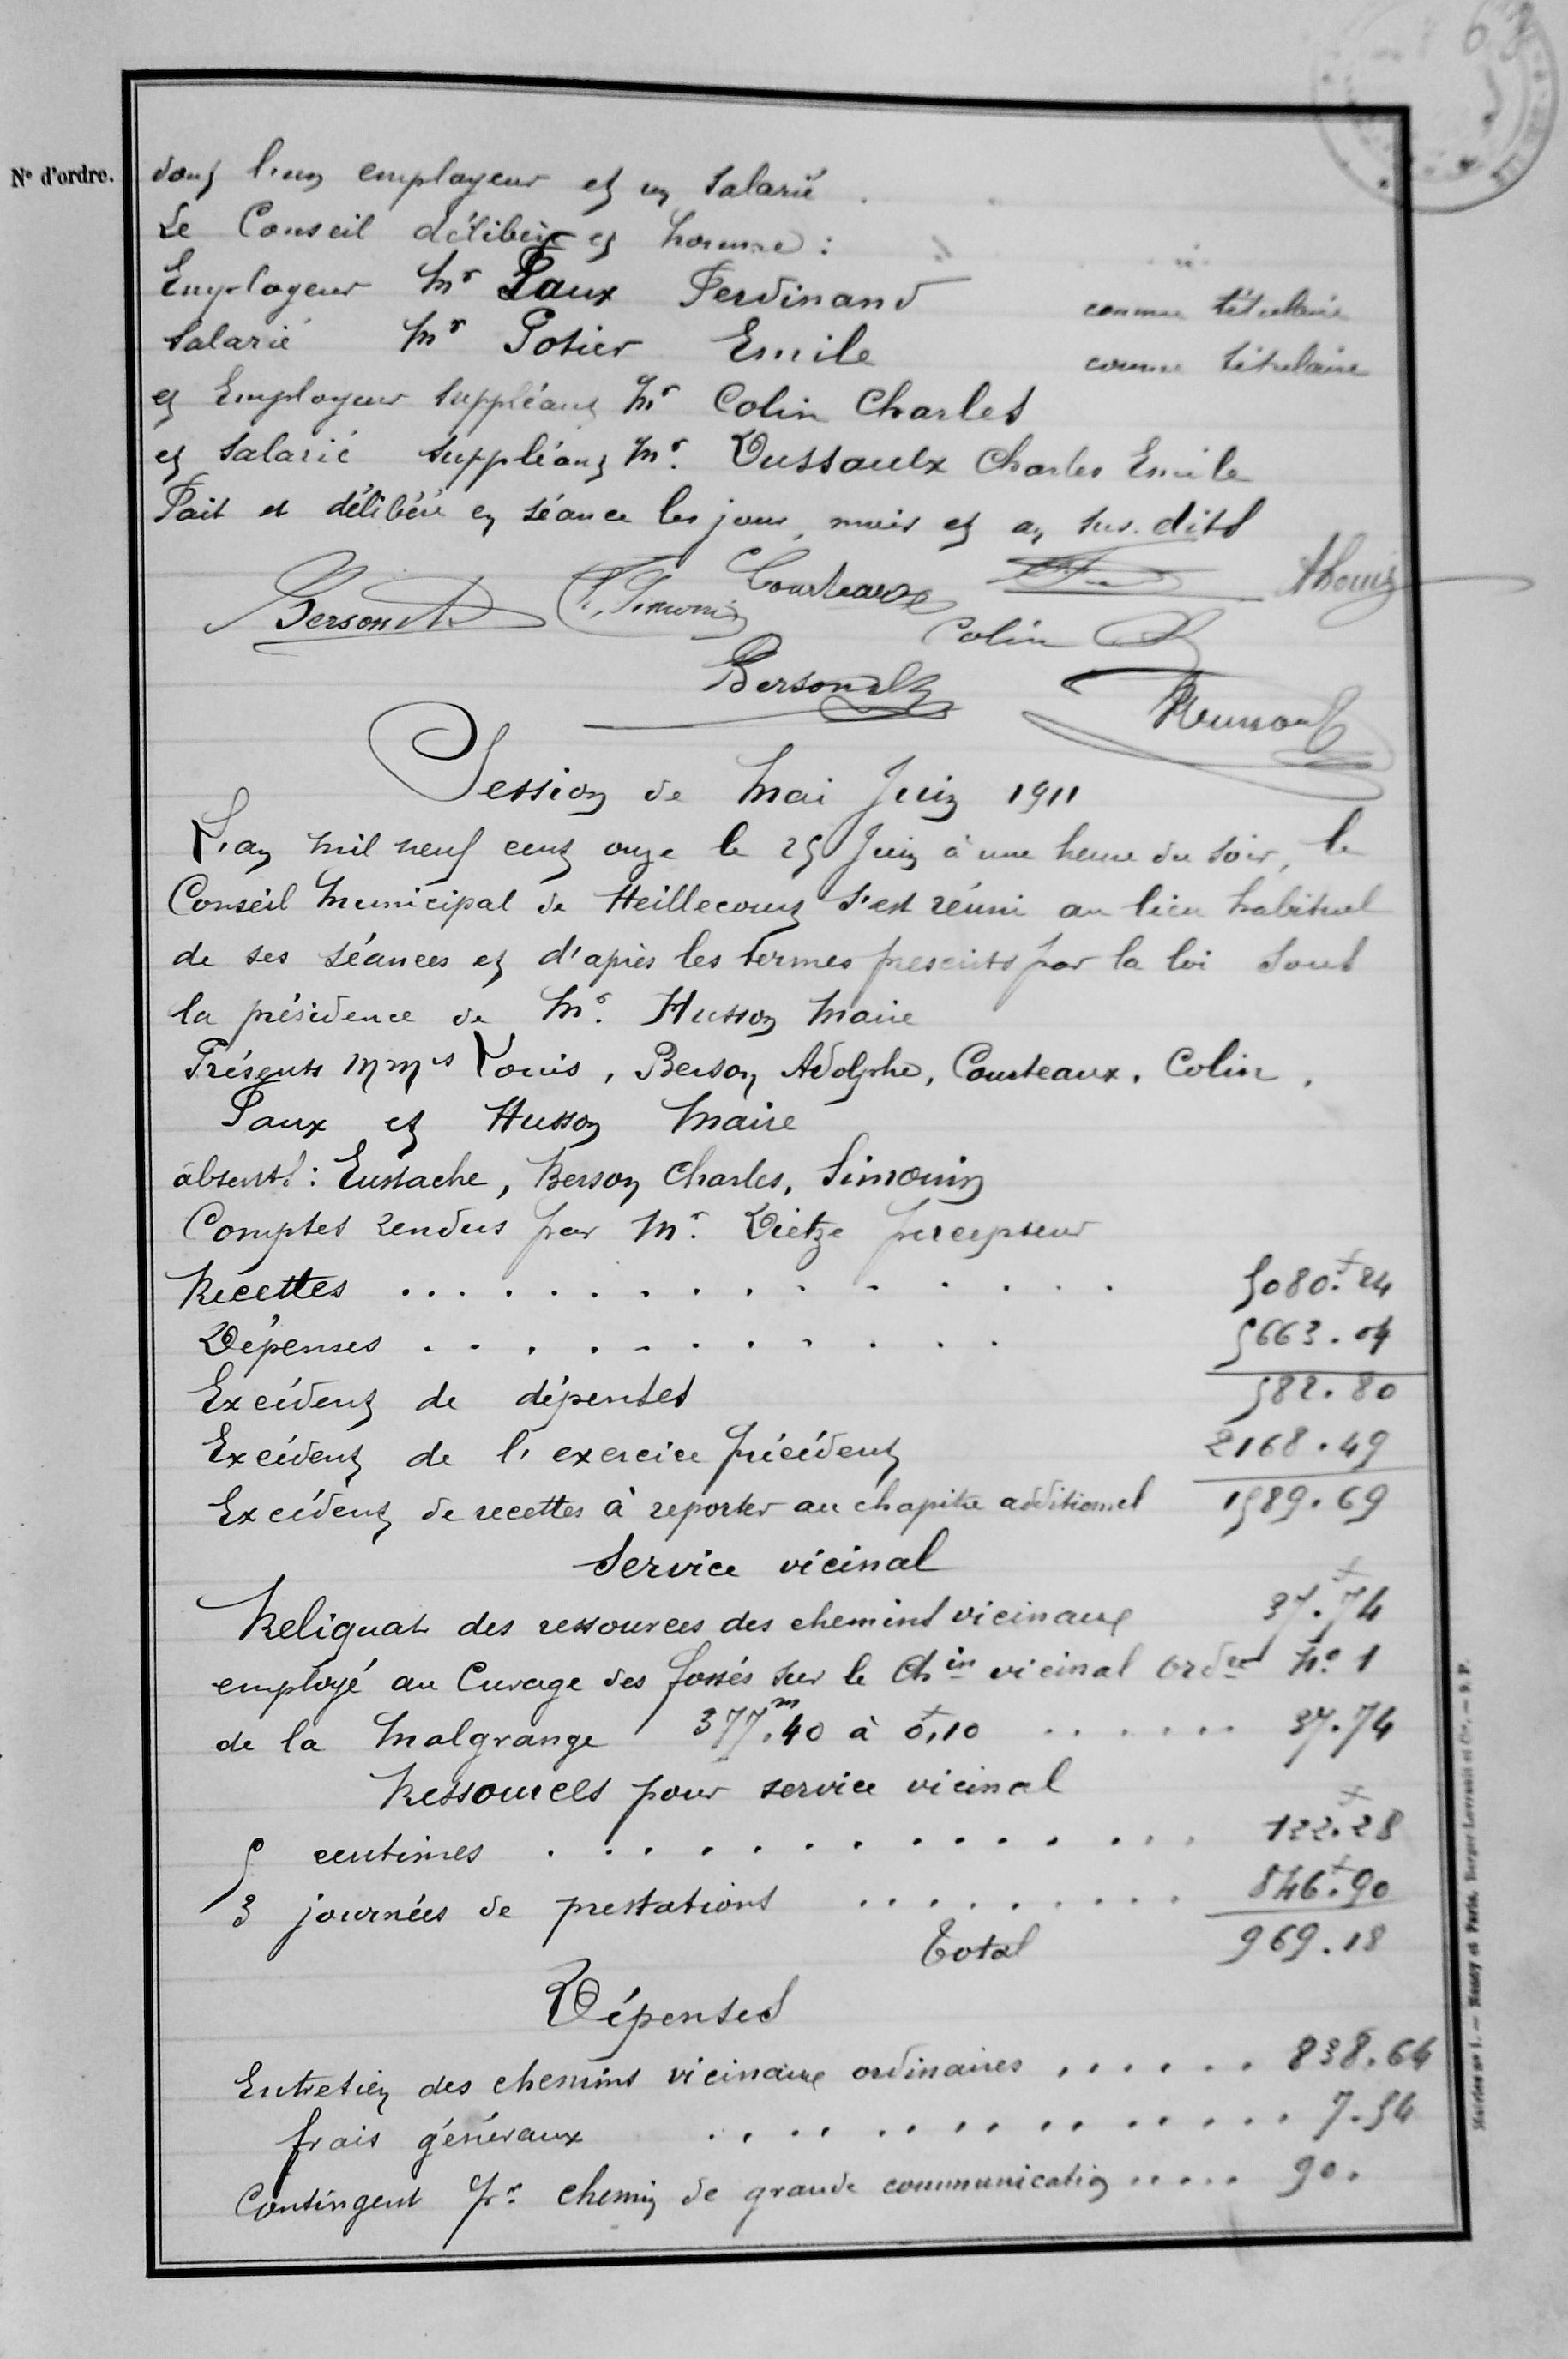 63
N° d'ordre.
dont l'un employeur et un salarié.
Le Conseil délibère et nomme :
Employeur Mr Paux Ferdinand comme titulaire
Salarié Mr Potier Emile comme titulaire
et Employeur suppléant Mr Colin Charles
et Salarié suppléant Mr. Dussaulx Charles Emile
Fait et délibéré en séance les jour, mois et an sus-dits
Berson A Simonin Courteaux A Louis
Colin
Berson Ch Husson
Session de Mai Juin 1911
L'an mil neuf cent onze le 25 Juin à une heure du soir, le
Conseil Municipal de Heillecourt s'est réuni au lieu habituel
de ses séances et d'après les termes prescrits par la loi sous
la présidence de Mr. Husson Maire
Présents MMrs Louis, Berson Adolphe, Courteaux, Colin,
Paux et Husson Maire
absents : Eustache, Berson Charles, Simonin
Comptes rendus par Mr. Dietze percepteur
Recettes . . . . . . . . . . . . . . . 5080.f24
Dépenses . . . . . . . . . . . 5663.04
Excédent de dépenses 582.80
Excédent de l'exercice précédent 2168.49
Excédent de recettes à reporter au chapitre additionnel 1589.69
Service vicinal
Reliquat des ressources des chemins vicinaux 37.f74
employé au Curage des fossés sur le Chin vicinal ordre N° 1
de la Malgrange 377.m40 à 0f,10 . . . . . . . 37.74
Ressources pour service vicinal
5 centimes . . . . . . . . . . . . . . . 122.f28
3 journées de prestations . . . . . . . . . 846.f90
Total 969.18
Dépenses
Entretien des chemins vicinaux ordinaires . . . . . . 838.64
frais généraux . . . . . . . . . . . . . . 7.54
Contingent pr. chemin de grande communication . . . . . 90.
Mairies n° 1. — Nancy et Paris, Berger-Levrault et Cie. — 9. P.